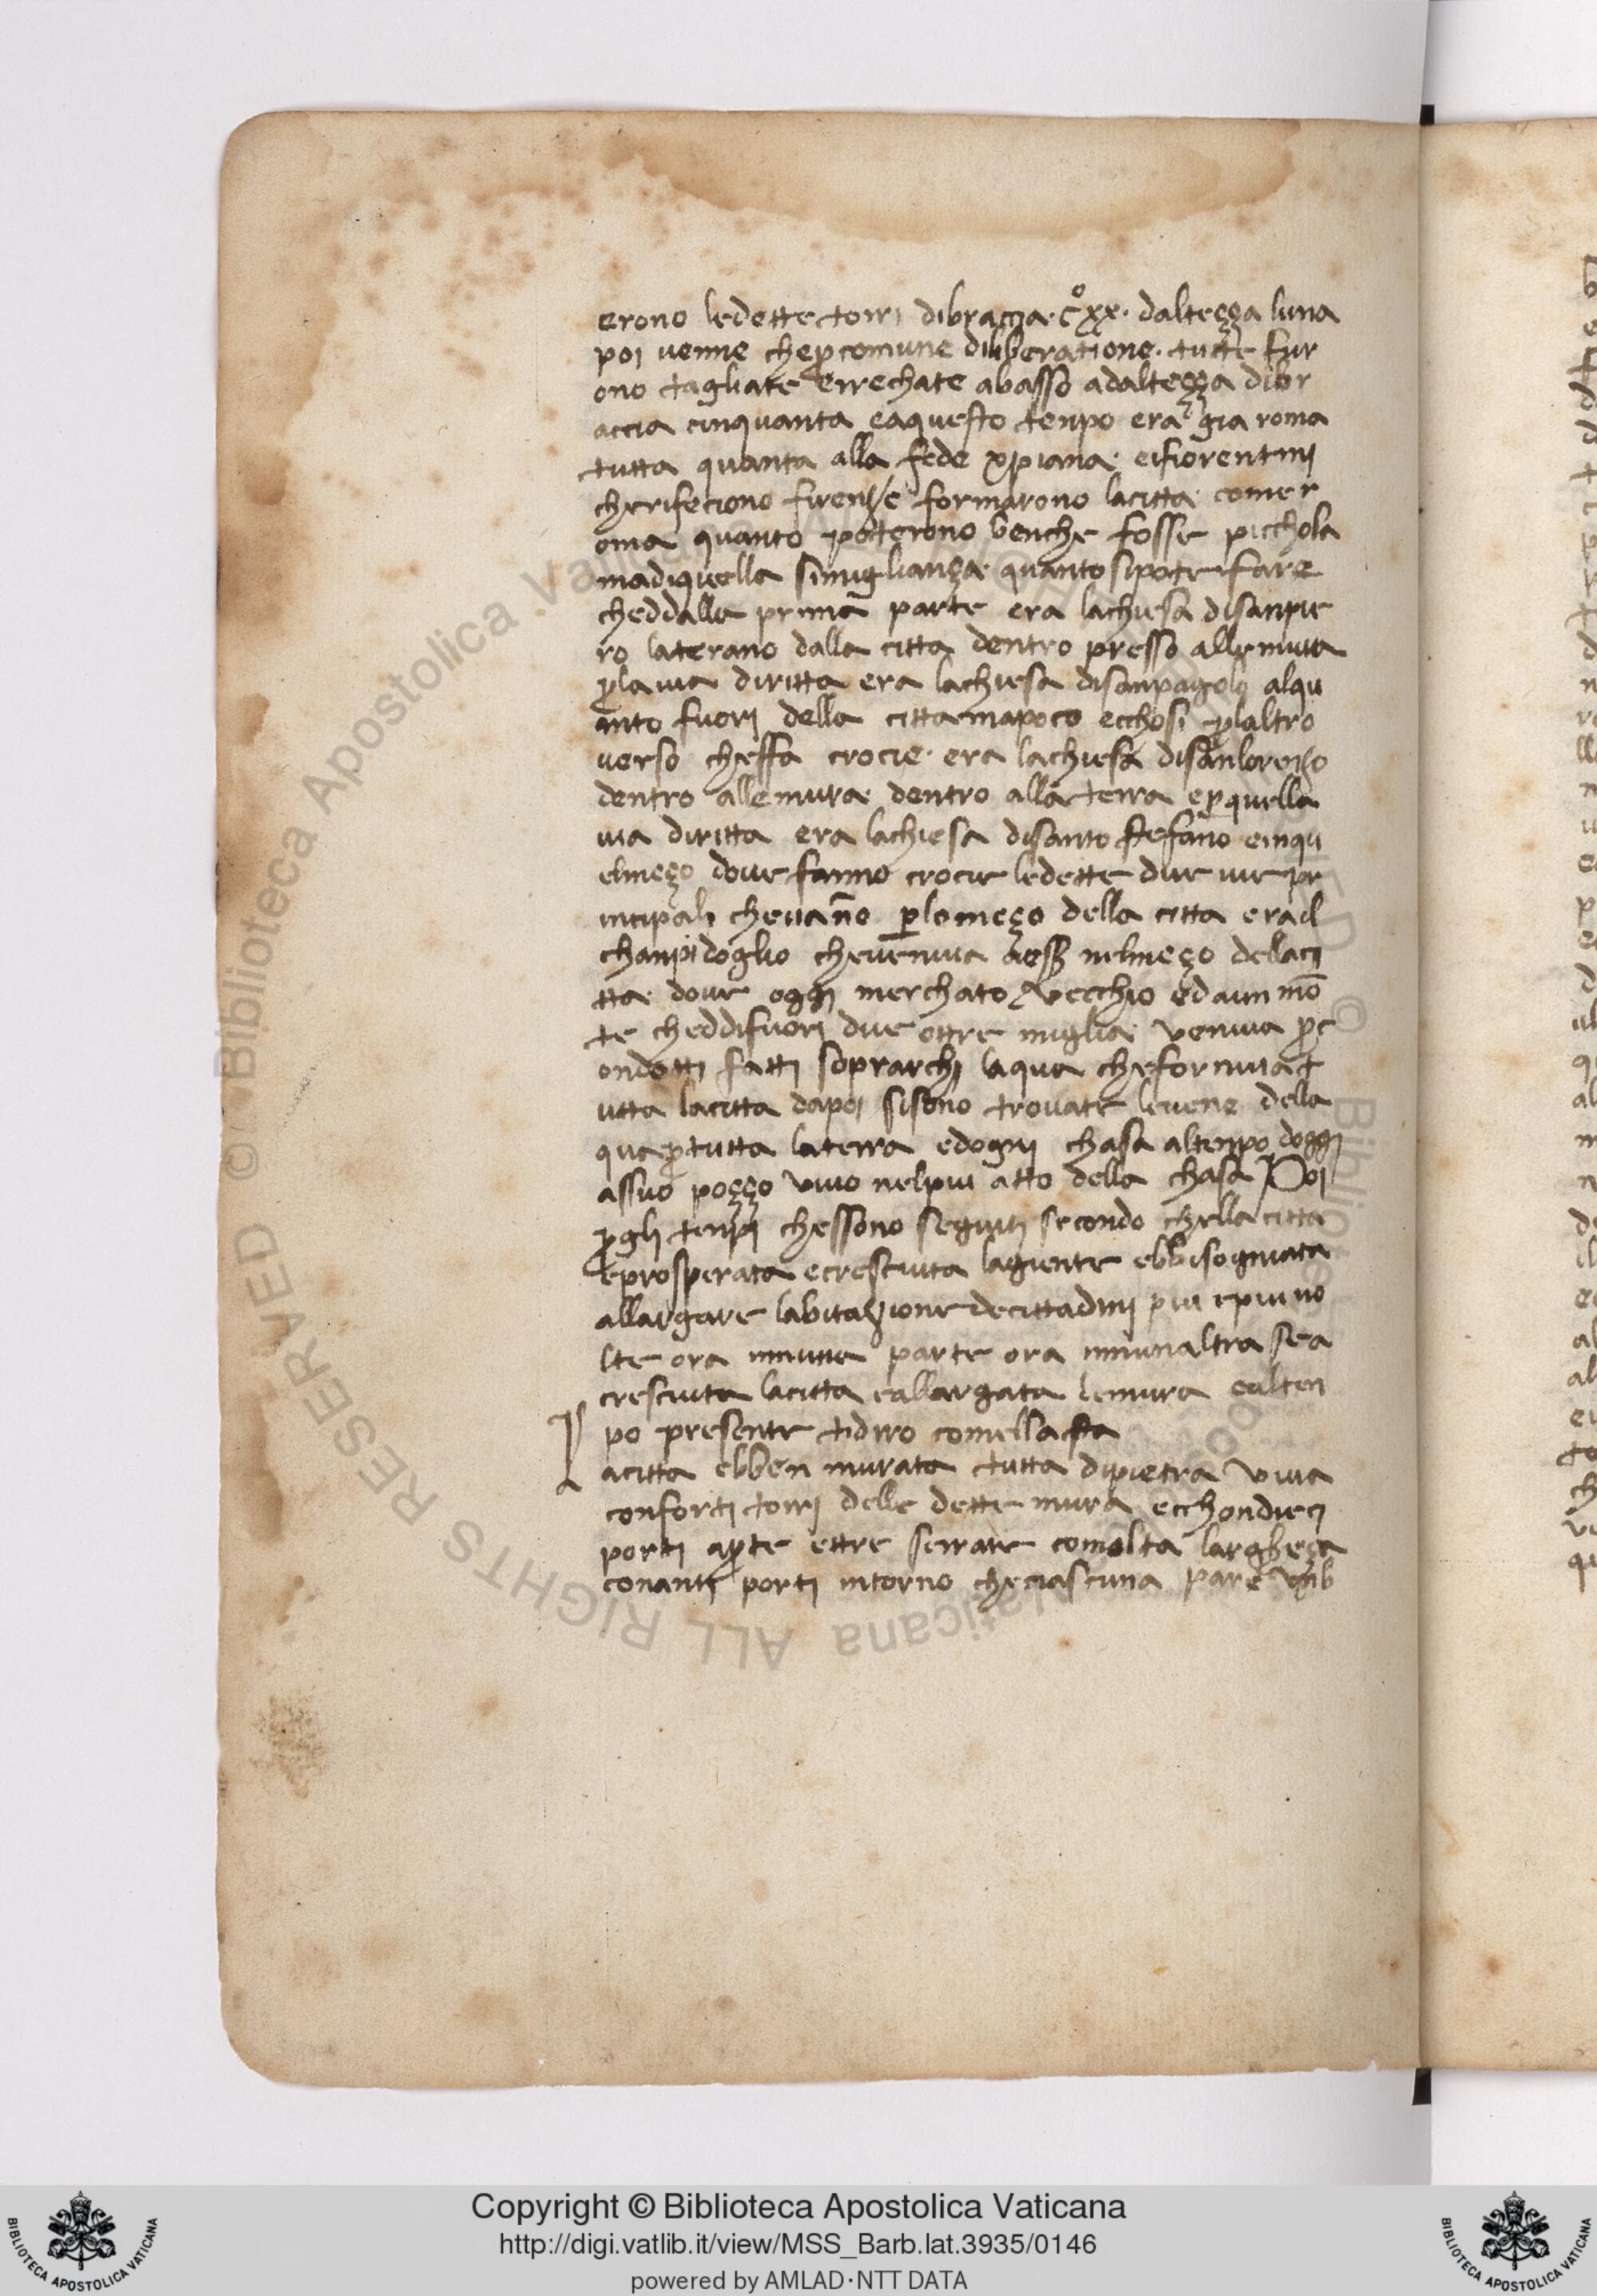 erono ledette torri dibraccia·cºxx·dalteçça luna
poi uenne chep̱comune diliberatione·tutte fur
ono tagliate errechate abasso adalteçça dibr
accia cinquanta eaquesto tenpo era gia roma
tutta quanta alla fede xpiana· eifiorentini
cherifeciono firenze formarono lacitta· comer
oma quanto potterono benche fosse picchola
madiquella simiglianҫa quanto sipote fare
cheddalla prima parte era lachiesa disanpie
ro laterano dalla citta dentro presso allemura
p̱lauia diritta era lachiesa disanpagolo alqu
anto fuori della citta mapoco ecchosi p̱laltro
verso cheffa crocie· era lachiesa disanlorenzo
dentro allemura dentro alla terra ep̱quella
uia diritta era lachiesa disanto stefano einqu
elmeço doue fanno crocie ledette due uie pr
incipali cheuanño p̱lomeço della citta erail
chanpidoglio cheueniua nelmeço dellaci
tta doue oggi merchato vecchio edaun mō
te cheddifuori due ottre miglia veniua p̱c
ondotti fatti soprarchi laqua cheforniuat
utta lacitta dapoi sisono trouate leuene della
quap̱tutta laterra edogni chasa altenpo doggi
assuo poçço viuo nelpiu atto della chasa Poi
p̱gli tenpi chessono seguiti secondo chella citta
eprosperata ecresciuta lagiente ebbisogniata
allargare labitazione decittadini piu epiu uo
lte ora innuna parte ora innunaltra sea
cresciuta lacitta eallargata lemura ealten
po presente tidiro comella sta
L acitta ebben murata tutta dipietra viua
conforti torri delle dette mura ecchondieci
porti ap̱te ettre serrate comolta largheça
conanti porti intorno checiascuna pare vnb
Copyright © Biblioteca Apostolica Vaticana
http://digi.vatlib.it/view/MSS_Barb.lat.3935/0146
powered by AMLAD·NTT DATA
BIBLIOTECA APOSTOLICA VATICANA
BIBLIOTECA APOSTOLICA VATICANA
© Biblioteca Apostolica Vaticana ALL RIGHTS RESERVED